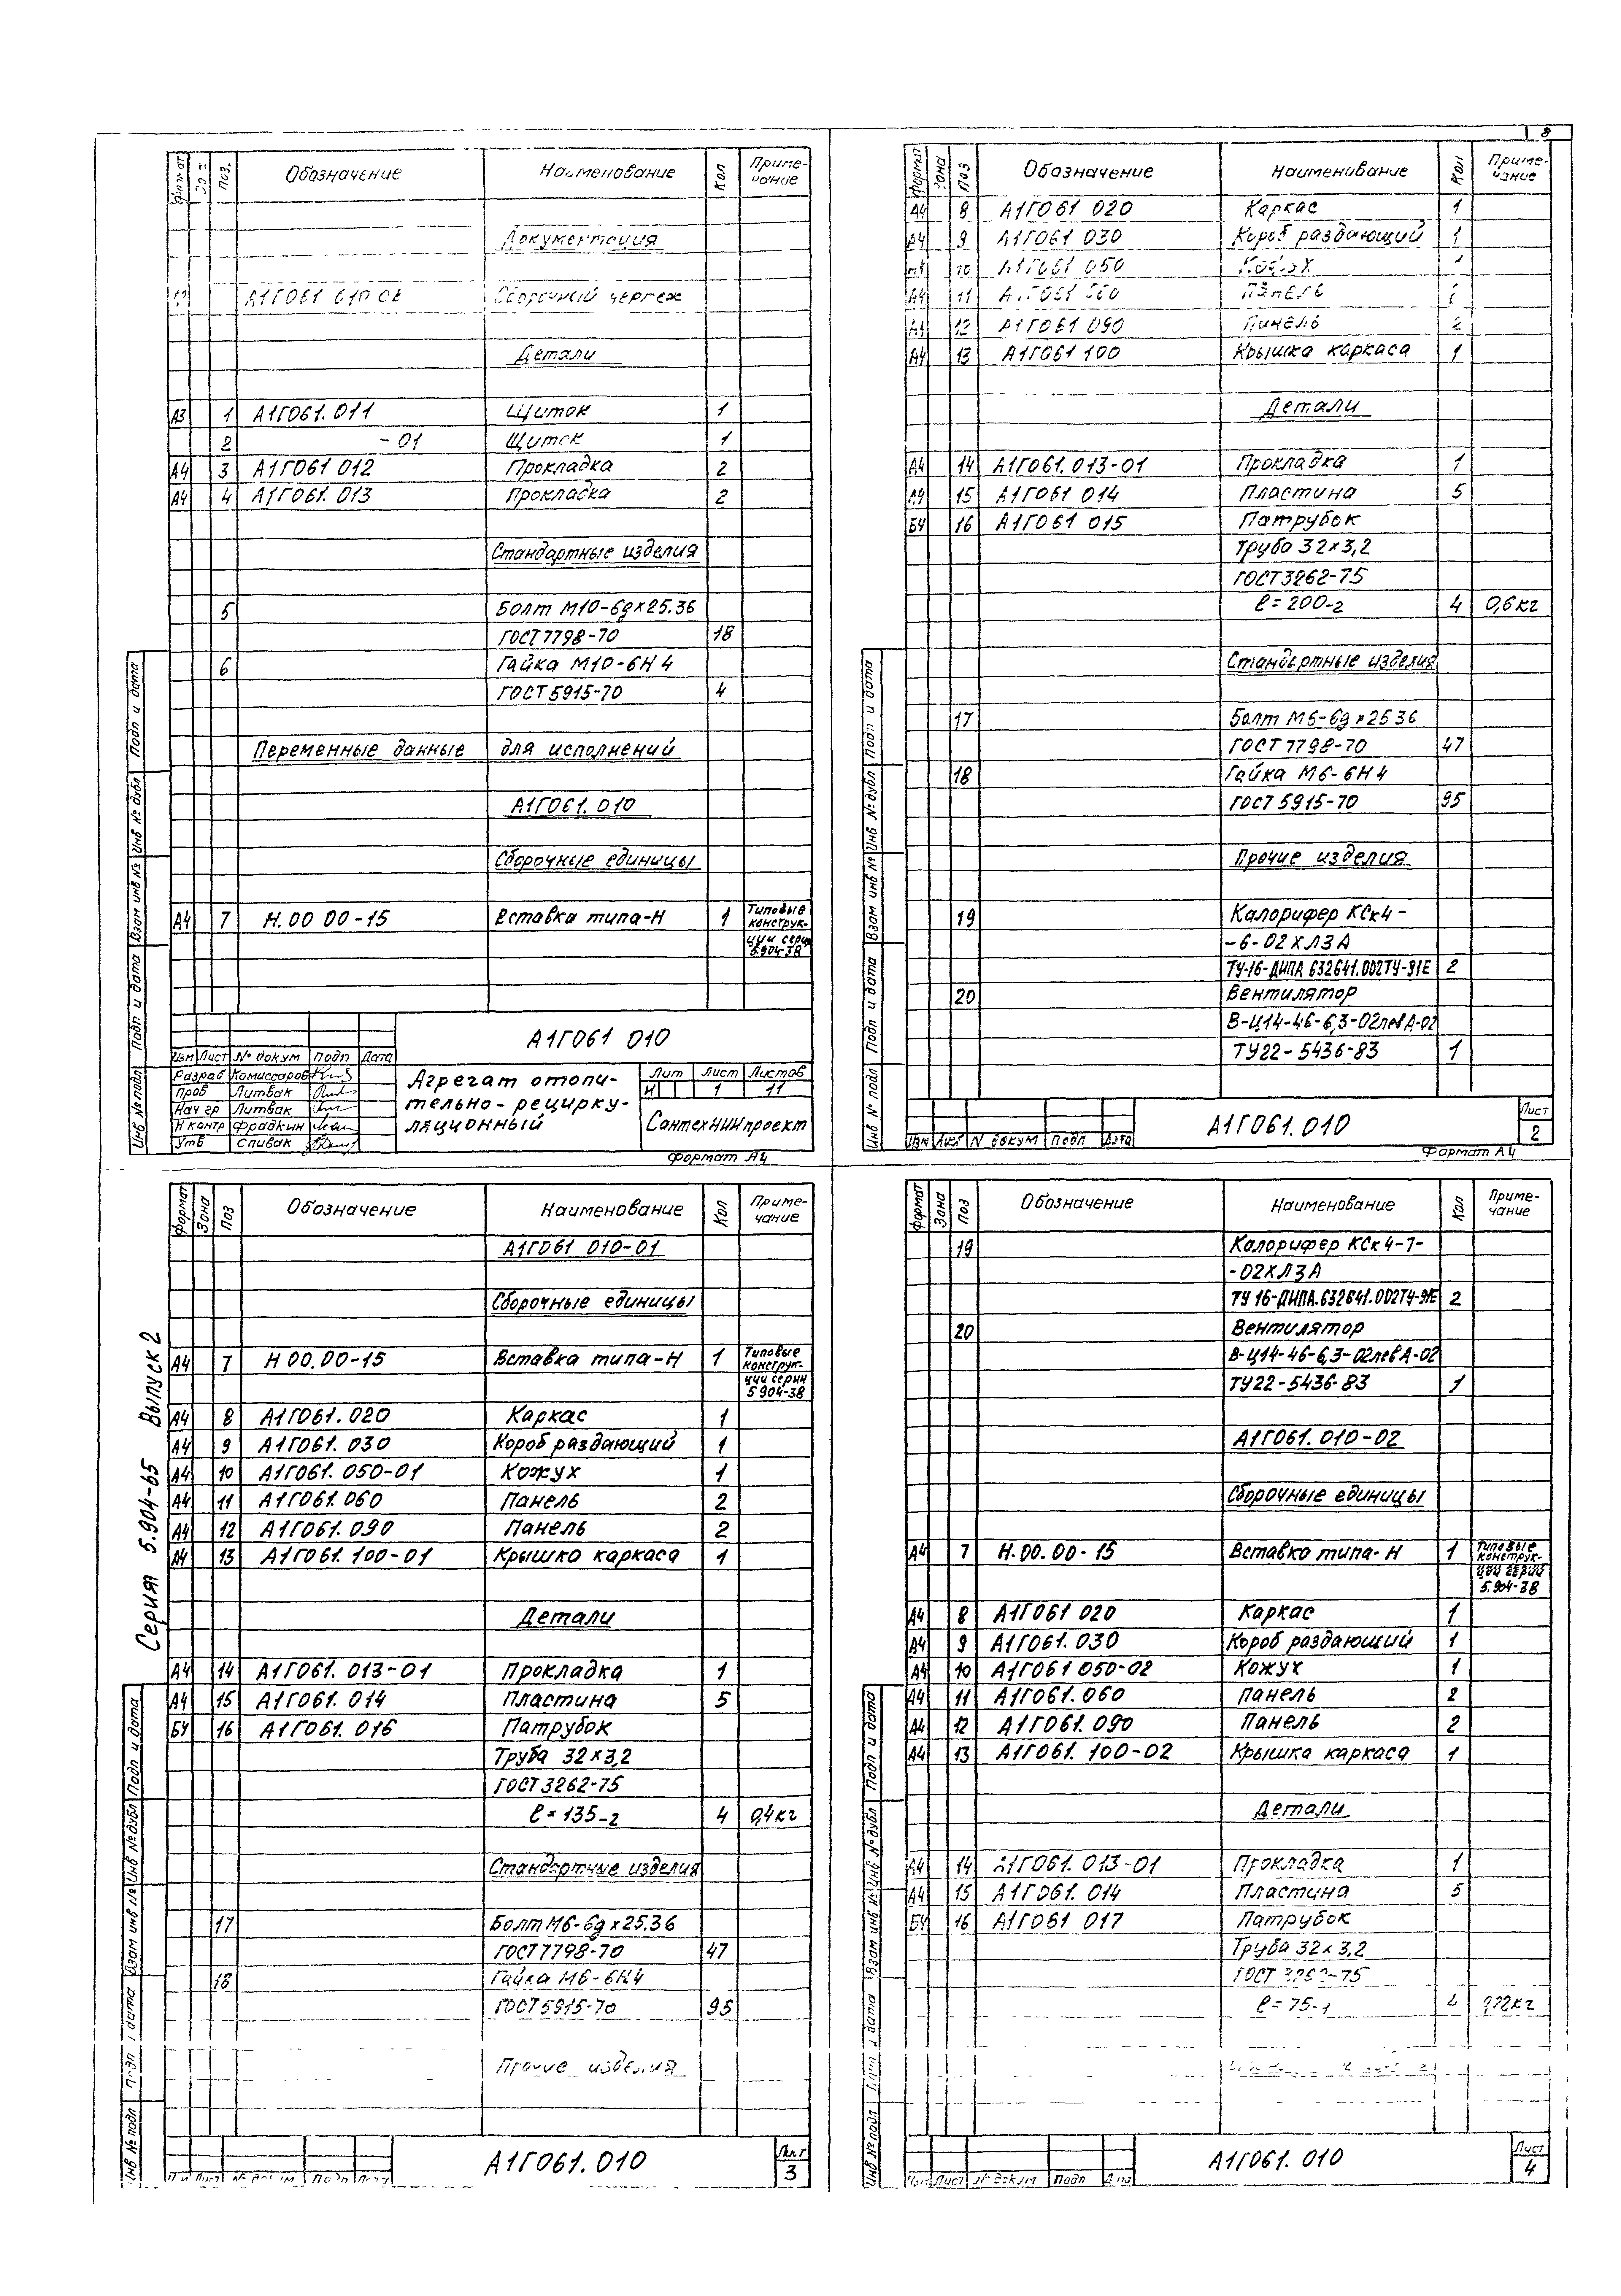 8
Формат Поз. Обозначение Наименование Кол Приме-
чание
Документация
А1Г061 010 СБ Сборочный чертеж
Детали
А3 1 А1Г061.011 Щиток 1
2 -01 Щиток 1
А4 3 А1Г061 012 Прокладка 2
А4 4 А1Г061.013 Прокладка 2
Стандартные изделия
5 Болт М10-6gх25.36
ГОСТ 7798-70 18
6 Гайка М10-6Н 4
ГОСТ 5915-70 4
Переменные данные для исполнений
А1Г061.010
Сборочные единицы
А4 7 Н.00 00-15 Вставка типа-Н 1 Типовые
конструк-
ции серии
5.904-38
А1Г061 010
Изм Лист № докум Подп Дата
Разраб Комиссаров
Пров Литвак
Нач гр Литвак
Н контр Фрадкин
Утв Спивак
Агрегат отопи-
тельно-рецирку-
ляционный
Лит Лист Листов
И 1 11
СантехНИИпроект
Формат А4
Инв № подл Подп и дата Взам инв № Инв № дубл Подп и дата
Формат Зона Поз Обозначение Наименование Кол Приме-
чание
А4 8 А1Г061 020 Каркас 1
А4 9 А1Г061 030 Короб раздающий 1
10 А1Г061 050 Кожух
А4 11 Панель
А4 12 А1Г061 090 Панель 2
А4 13 А1Г061 100 Крышка каркаса 1
Детали
А4 14 А1Г061.013-01 Прокладка 1
А4 15 А1Г061 014 Пластина 5
БЧ 16 А1Г061 015 Патрубок
Труба 32х3,2
ГОСТ 3262-75
ℓ=200-2 4 0,6кг
Стандартные изделия
17 Болт М6-6gх25 36
ГОСТ 7798-70 47
18 Гайка М6-6Н 4
ГОСТ 5915-70 95
Прочие изделия
19 Калорифер КСк4-
-6-02ХЛ3А
ТУ-16-ДИПА 632641.002ТУ-91Е 2
20 Вентилятор
В-Ц14-46-6,3-02левА-02
ТУ22-5436-83 1
Изм Лист N докум Подп Дата
А1Г061.010
Лист
2
Формат А4
Инв № подл Подп и дата Взам инв № Инв № дубл Подп и дата
Серия 5.904-65 Выпуск 2
Формат Зона Поз Обозначение Наименование Кол Приме-
чание
А1Г061 010-01
Сборочные единицы
А4 7 Н 00.00-15 Вставка типа-Н 1 Типовые
конструк-
ции серии
5 904-38
А4 8 А1Г061.020 Каркас 1
А4 9 А1Г061. 030 Короб раздающий 1
А4 10 А1Г061. 050-01 Кожух 1
А4 11 А1Г061.060 Панель 2
А4 12 А1Г061. 090 Панель 2
А4 13 А1Г061. 100-01 Крышка каркаса 1
Детали
А4 14 А1Г061. 013-01 Прокладка 1
А4 15 А1Г061. 014 Пластина 5
БЧ 16 А1Г061. 016 Патрубок
Труба 32х3,2
ГОСТ 3262-75
ℓ=135-2 4 0,4кг
Стандартные изделия
17 Болт М6-6gх25.36
ГОСТ 7798-70 47
18 Гайка М6-6Н4
ГОСТ 5915-70 95
Прочие изделия
Лист № докум Подп Дата
А1Г061.010
Лист
3
Инв № подл Подп и дата Взам инв № Инв № дубл Подп и дата
Формат Зона Поз Обозначение Наименование Кол Приме-
чание
19 Калорифер КСк4-7-
-02ХЛ3А
ТУ 16-ДИПА.632641.002ТУ-91Е 2
20 Вентилятор
В-Ц14-46-6,3-02левА-02
ТУ22-5436-83 1
А1Г061.010-02
Сборочные единицы
А4 7 Н.00.00-15 Вставка типа-Н 1 Типовые
конструк-
ции серии
5.904-38
А4 8 А1Г061 020 Каркас 1
А4 9 А1Г061.030 Короб раздающий 1
А4 10 А1Г061 050-02 Кожух 1
А4 11 А1Г061.060 Панель 2
А4 12 А1Г061. 090 Панель 2
А4 13 А1Г061. 100-02 Крышка каркаса 1
Детали
А4 14 А1Г061. 013-01 Прокладка 1
А4 15 А1Г061. 014 Пластина 5
БЧ 16 А1Г061 017 Патрубок
Труба 32х3,2
ГОСТ 3262-75
ℓ=75-1 4
Изм Лист № докум Подп Дата
А1Г061.010
Лист
4
Инв № подл Подп и дата Взам инв № Инв № дубл Подп и дата